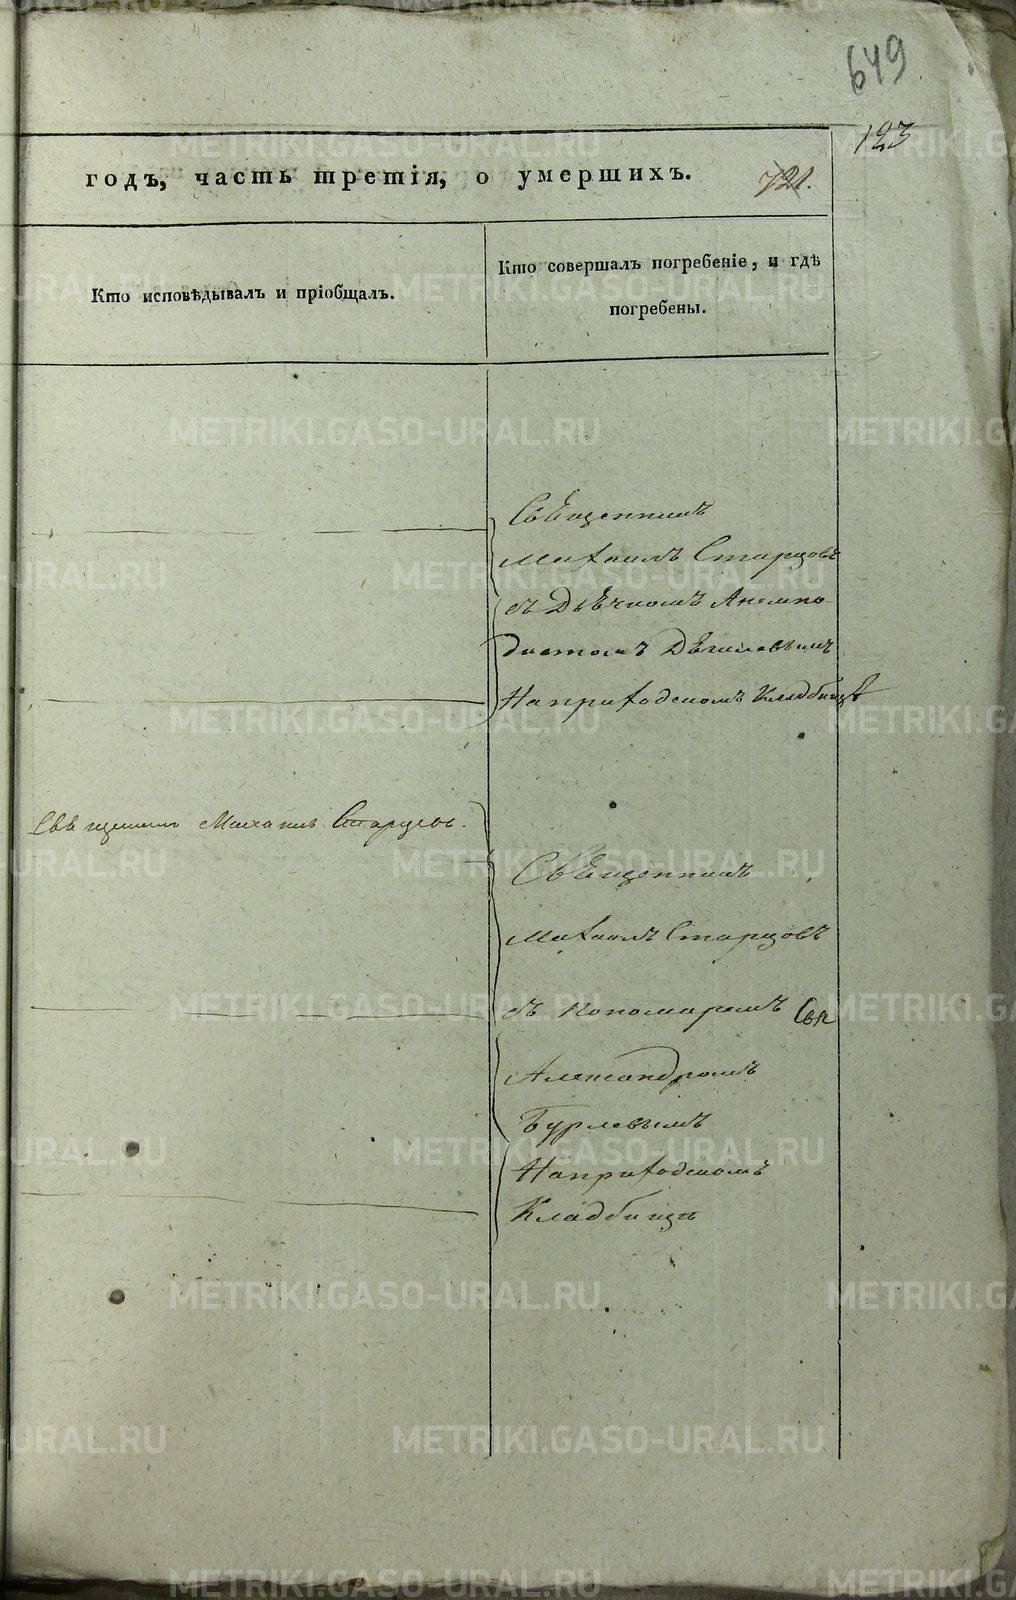 649
123
годъ, часть третія, о умершихъ.
721.
Кто исповѣдывалъ и пріобщалъ.
Кто совершалъ погребеніе, и гдѣ
погребены.
Священникъ
Михаилъ Старцовъ
съ Дьячкомъ Анемпо
дистомъ
На приходскомъ Кладбищѣ
Священникъ Михаилъ Старцовъ.
Священникъ
Михаилъ Старцовъ
съ Пономаремъ
Александромъ
Бурлевымъ
На приходскомъ
Кладбищѣ
METRIKI.GASO-URAL.RU